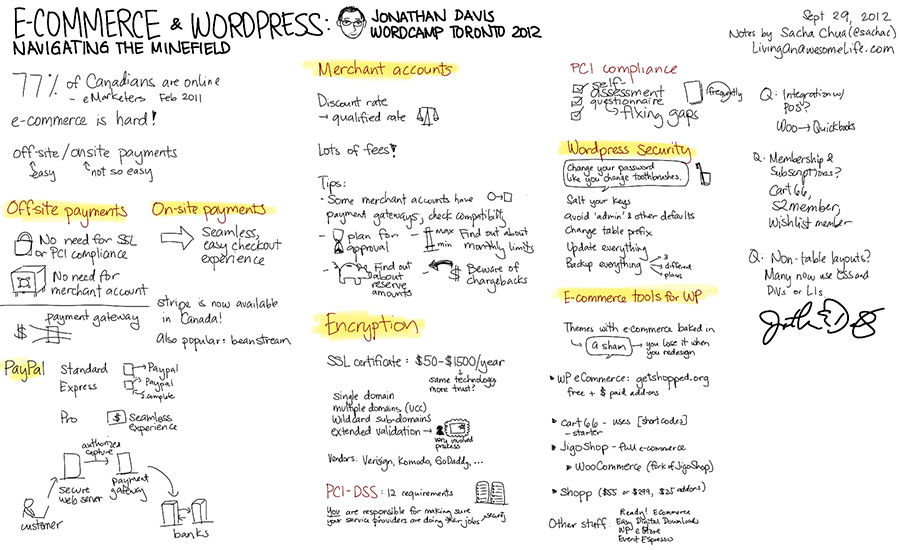 E-COMMERCE & WORDPRESS:
NAVIGATING THE MINEFIELD
JONATHAN DAVIS
WORDCAMP TORONTO 2012
Sept 29, 2012
Notes by Sacha Chua (@sachac)
LivingAnAwesomeLife.com
77% of Canadians are online
- eMarketers Feb 2011
e-commerce is hard!
off-site/onsite payments
easy
not so easy
Off-site payments
No need for SSL
or PCI compliance
No need for
merchant account
payment gateway
$
On-site payments
Seamless,
easy checkout
experience
stripe is now available
in Canada!
Also popular: beanstream
PayPal
Standard
Paypal
Express
Paypal
Complete
Pro
$
Seamless
experience
authorize
capture
secure
web server
payment
gateway
customer
banks
Merchant accounts
Discount rate
→ qualified rate
Lots of fees!
Tips:
- Some merchant accounts have
payment gateways, check compatibility
- plan for
approval
- max
min
Find out about
monthly limits
- Find out
about
reserve
amounts
- $ Beware of
chargebacks
Encryption
SSL certificate: $50-$1500/year
same technology
more trust?
single domain
multiple domains (UCC)
wildcard sub-domains
extended validation →
very involved
process
Vendors: Verisign, Komodo, GoDaddy, ...
PCI-DSS: 12 requirements
You are responsible for making sure
your service providers are doing their jobs
security
PCI compliance
self-
assessment
questionnaire
→ fixing gaps
frequently
Wordpress Security
Change your password
like you change toothbrushes.
Salt your keys
avoid 'admin' & other defaults
Change table prefix
Update everything
Backup everything
3
different
places
E-commerce tools for WP
Themes with e-commerce baked in
a sham → you lose it when
you redesign
▸ WP eCommerce: getshopped.org
free + $ paid add-ons
▸ Cart 66 - uses [shortcodes]
- starter
▸ JigoShop - full e-commerce
▸ WooCommerce (fork of JigoShop)
▸ Shopp ($55 or $299, $25 addons)
Other stuff:
Ready! Ecommerce
Easy Digital Downloads
WP eStore
Event Espresso
Q: Integration w/
POS?
Woo → Quickbooks
Q: Membership &
Subscriptions?
Cart 66,
S2member,
Wishlist member
Q: Non-table layouts?
Many now use CSS and
DIVs or LIs